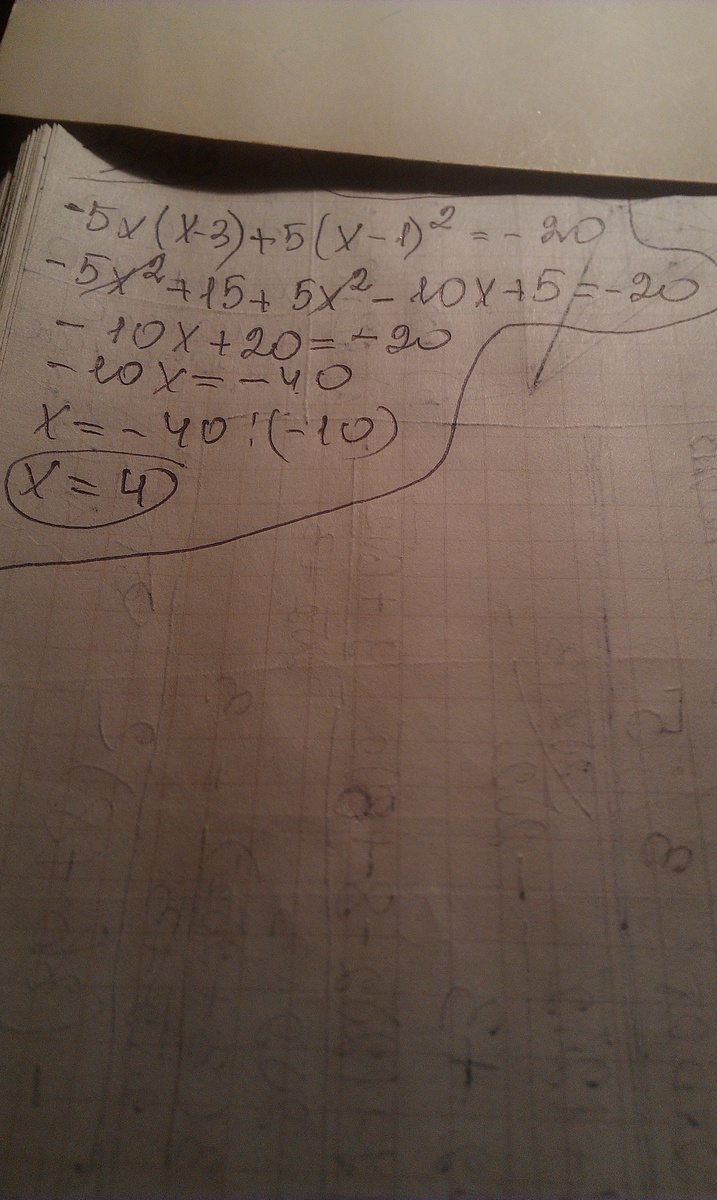 -5x(x-3)+5(x-1)² = -20
-5x²+15+5x²-10x+5=-20
-10x+20=-20
-10x=-40
x=-40:(-10)
x=4